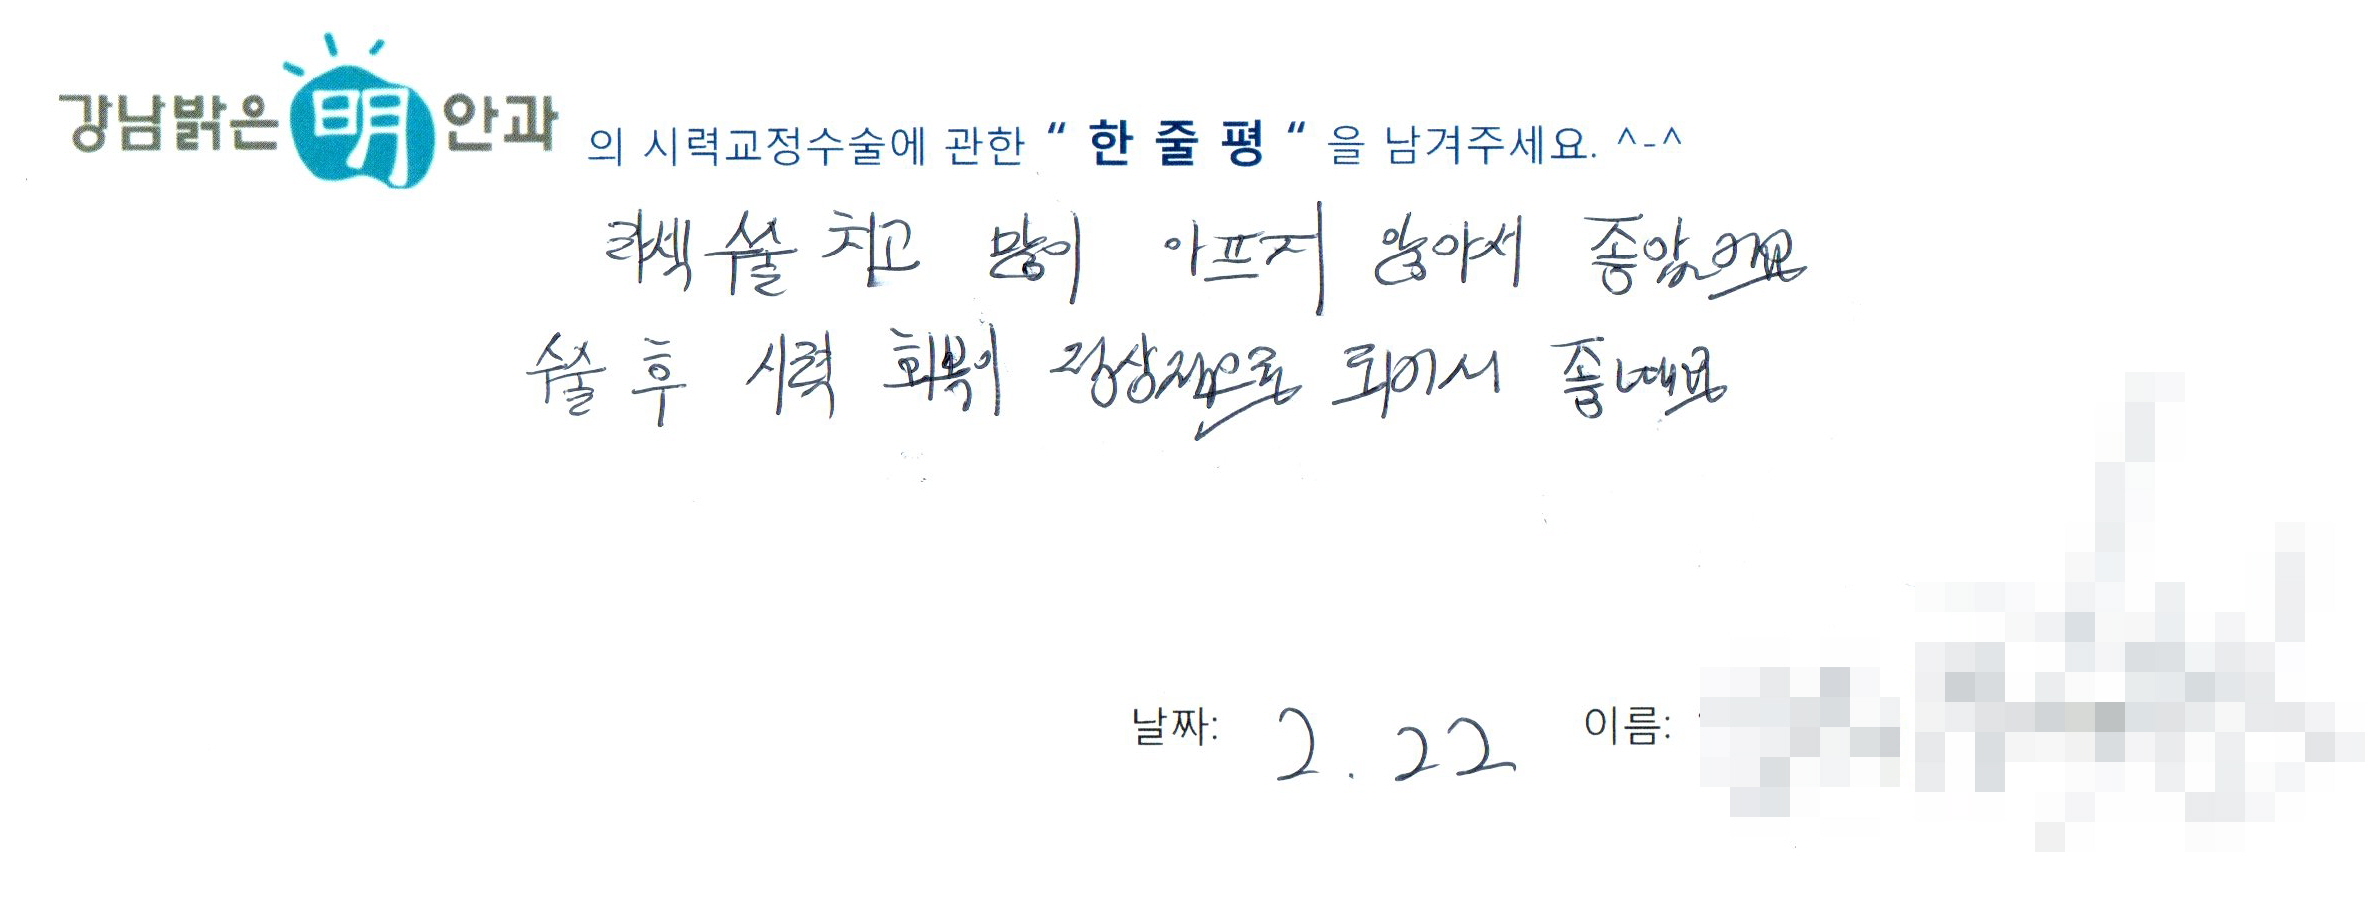 강남밝은 明 안과 의 시력교정수술에 관한 “ 한 줄 평 “ 을 남겨주세요. ^-^
라섹 수술 치고 많이 아프지 않아서 좋았고요
수술 후 시력 회복이 정상적으로 되어서 좋네요
날짜: 2. 22 이름: